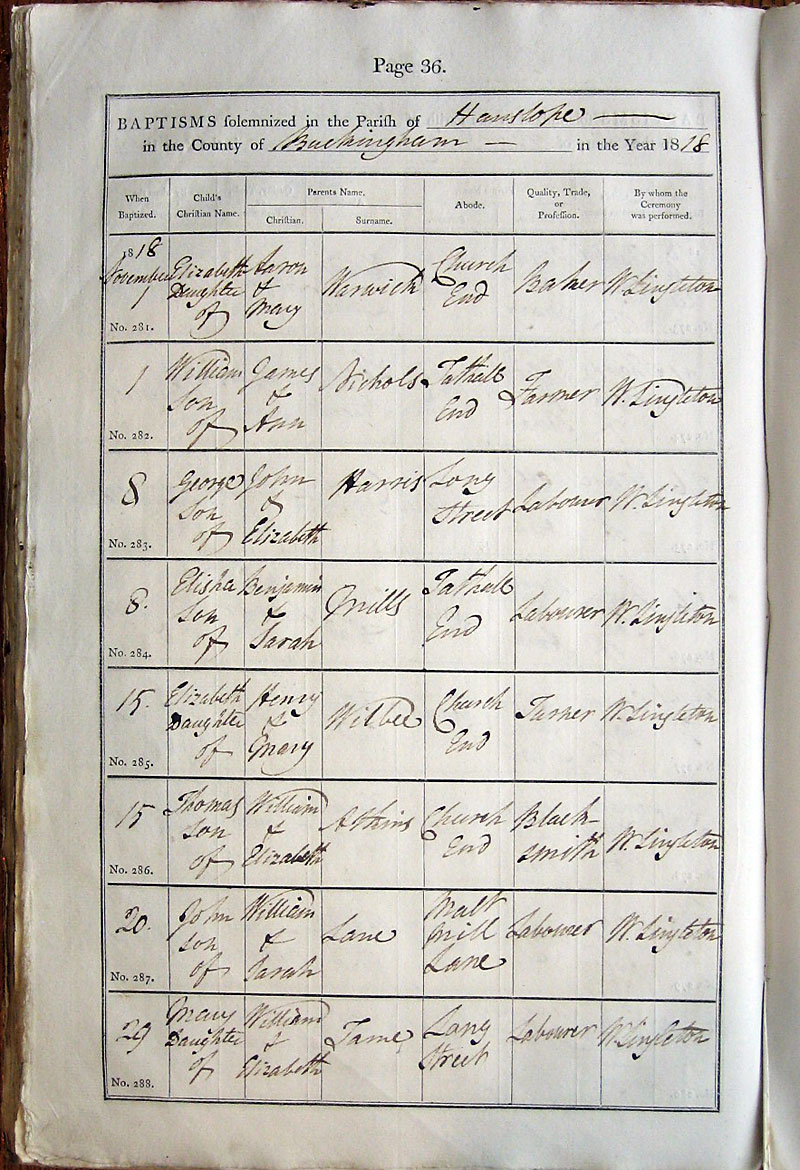 Page 36.
BAPTISMS solemnized in the Parish of Hanslope
in the County of Buckingham in the Year 1818
When Baptized. Child's Christian Name. Parents Name. Christian. Surname. Abode. Quality, Trade, or Profession. By whom the Ceremony was performed.
1818
November 1 Elizabeth Daughter of Aaron & Mary Warwick Church End Baker W. Singleton
No. 281.
1 William son of James & Ann Nichols Tathall End Farmer W. Singleton
No. 282.
8 George son of John & Elizabeth Harris Long Street Labourer W. Singleton
No. 283.
8. Elisha son of Benjamin & Sarah Mills Tathall End Labourer W. Singleton
No. 284.
15. Elizabeth Daughter of Henry & Mary Wilbee Church End Turner W. Singleton
No. 285.
15 Thomas son of William & Elizabeth Atkins Church End Black-smith W. Singleton
No. 286.
20. John son of William & Sarah Lane Malt Mill Lane Labourer W. Singleton
No. 287.
29 Mary Daughter of William & Elizabeth Tame Long Street Labourer W. Singleton
No. 288.